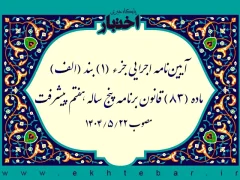 اختبار
آیین‌نامه اجرایی جزء (۱) بند (الف)
ماده (۸۳) قانون برنامه پنج ساله هفتم پیشرفت
مصوب ۱۴۰۴/۵/۲۲
www.ekhtebar.ir